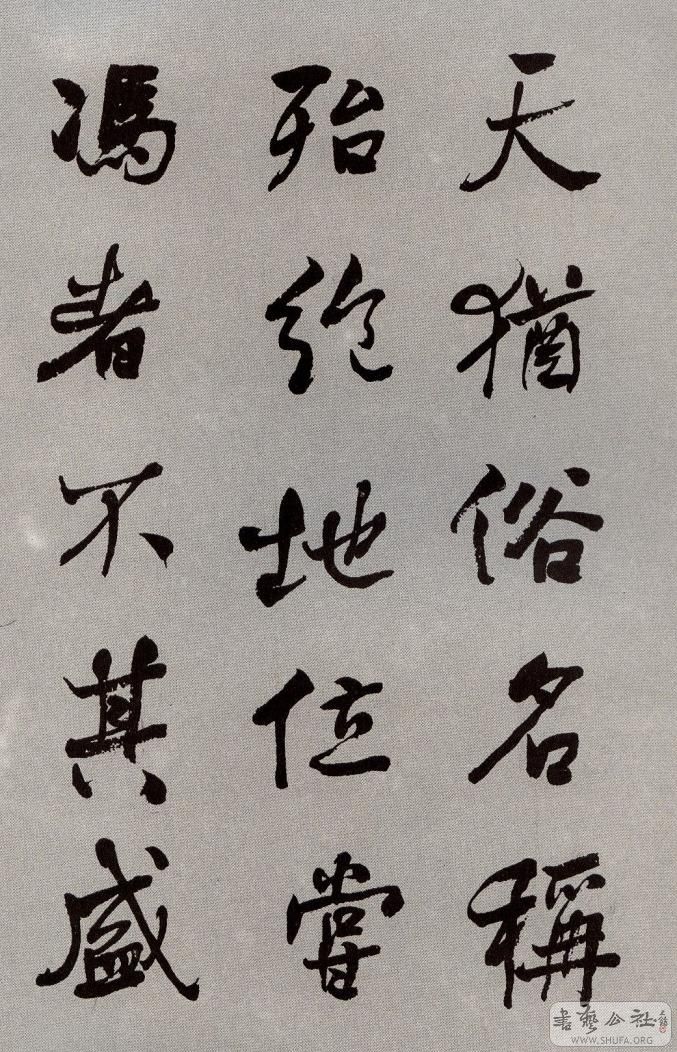 天猶俗名稱
殆絕地位當
馮者不其盛
書藝公社
WWW.SHUFA.ORG